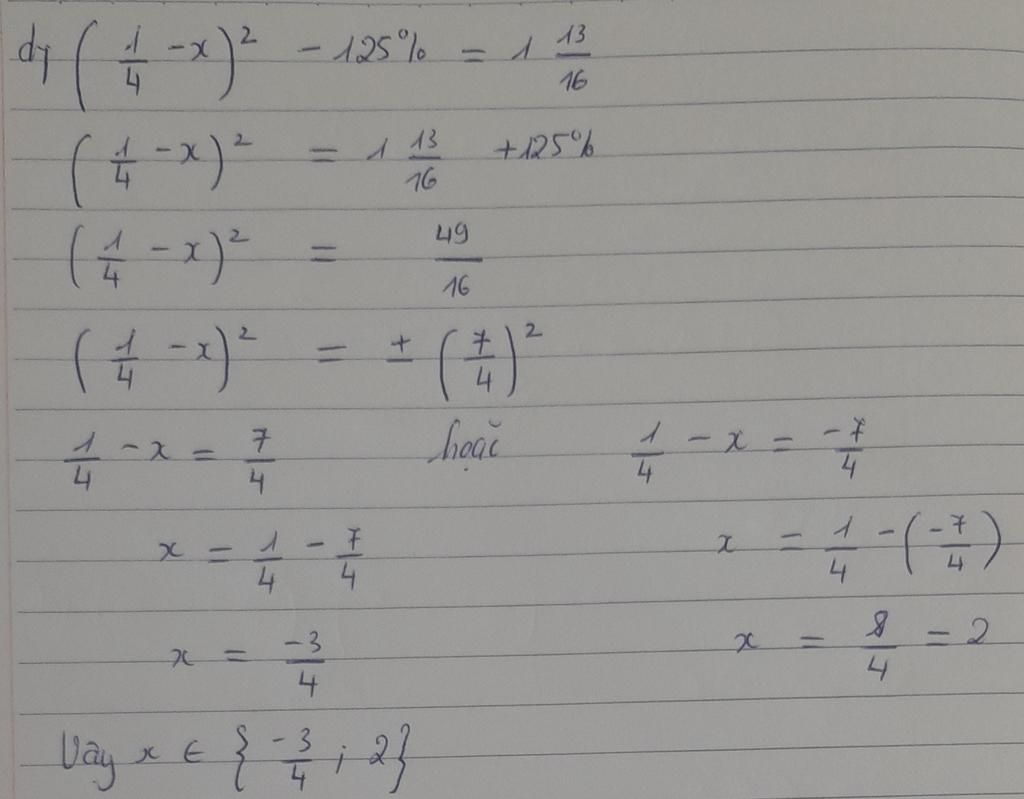 d) (1/4 - x)² - 125% = 1 13/16
(1/4 - x)² = 1 13/16 + 125%
(1/4 - x)² = 49/16
(1/4 - x)² = ± (7/4)²
1/4 - x = 7/4 hoặc 1/4 - x = -7/4
x = 1/4 - 7/4 x = 1/4 - (-7/4)
x = -3/4 x = 8/4 = 2
Vậy x ∈ {-3/4 ; 2}